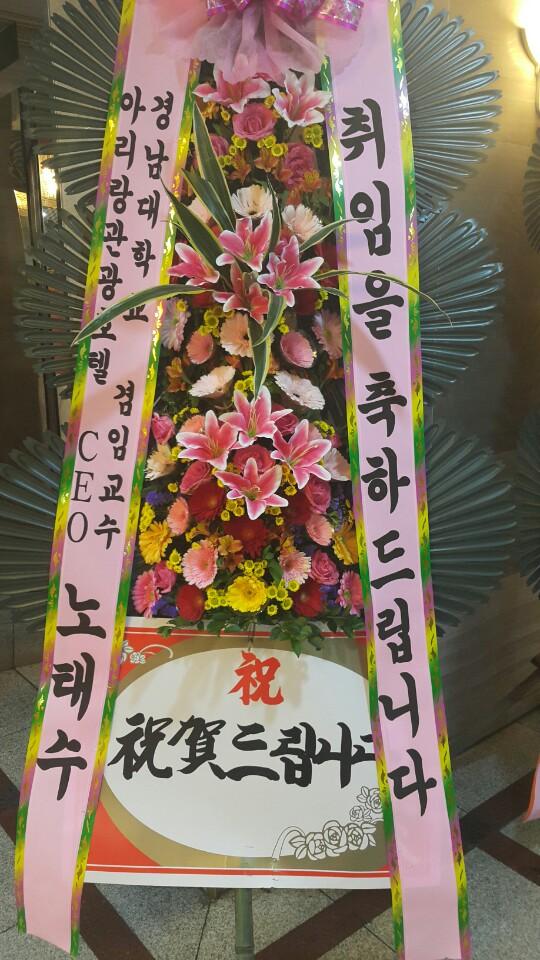 경남대학교 겸임교수
아리랑관광호텔 CEO
노태수
취임을 축하드립니다
祝
祝賀드립니다